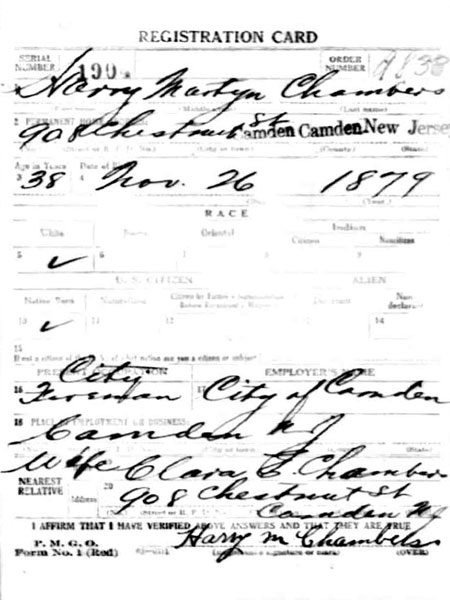 REGISTRATION CARD
SERIAL NUMBER 190 ORDER NUMBER
Harry Martyn Chambers
2 PERMANENT HOME ADDRESS:
908 Chestnut St Camden Camden New Jersey
(City or town) (County) (State)
Age in Years Date of
3 38 4 Nov. 26 1879
RACE
White Negro Oriental Indian
Citizen Noncitizen
5 ✓ 6 7
U. S. CITIZEN ALIEN
Native Born Naturalized Citizen by Father's Naturalization Before Registrant's Majority Declarant Non-declarant
10 ✓ 11 12 13 14
15
If not a citizen of the U. S., of what nation are you a citizen or subject?
PRESENT OCCUPATION EMPLOYER'S NAME
City
16 Fireman 17 City of Camden
18 PLACE OF EMPLOYMENT OR BUSINESS:
Camden NJ
Wife Clara E. Chambers
NEAREST RELATIVE Address 20 908 Chestnut St
Camden NJ
I AFFIRM THAT I HAVE VERIFIED ABOVE ANSWERS AND THAT THEY ARE TRUE
P. M. G. O.
Form No. 1 (Red) Harry M Chambers
(Registrant's signature or mark) (OVER)